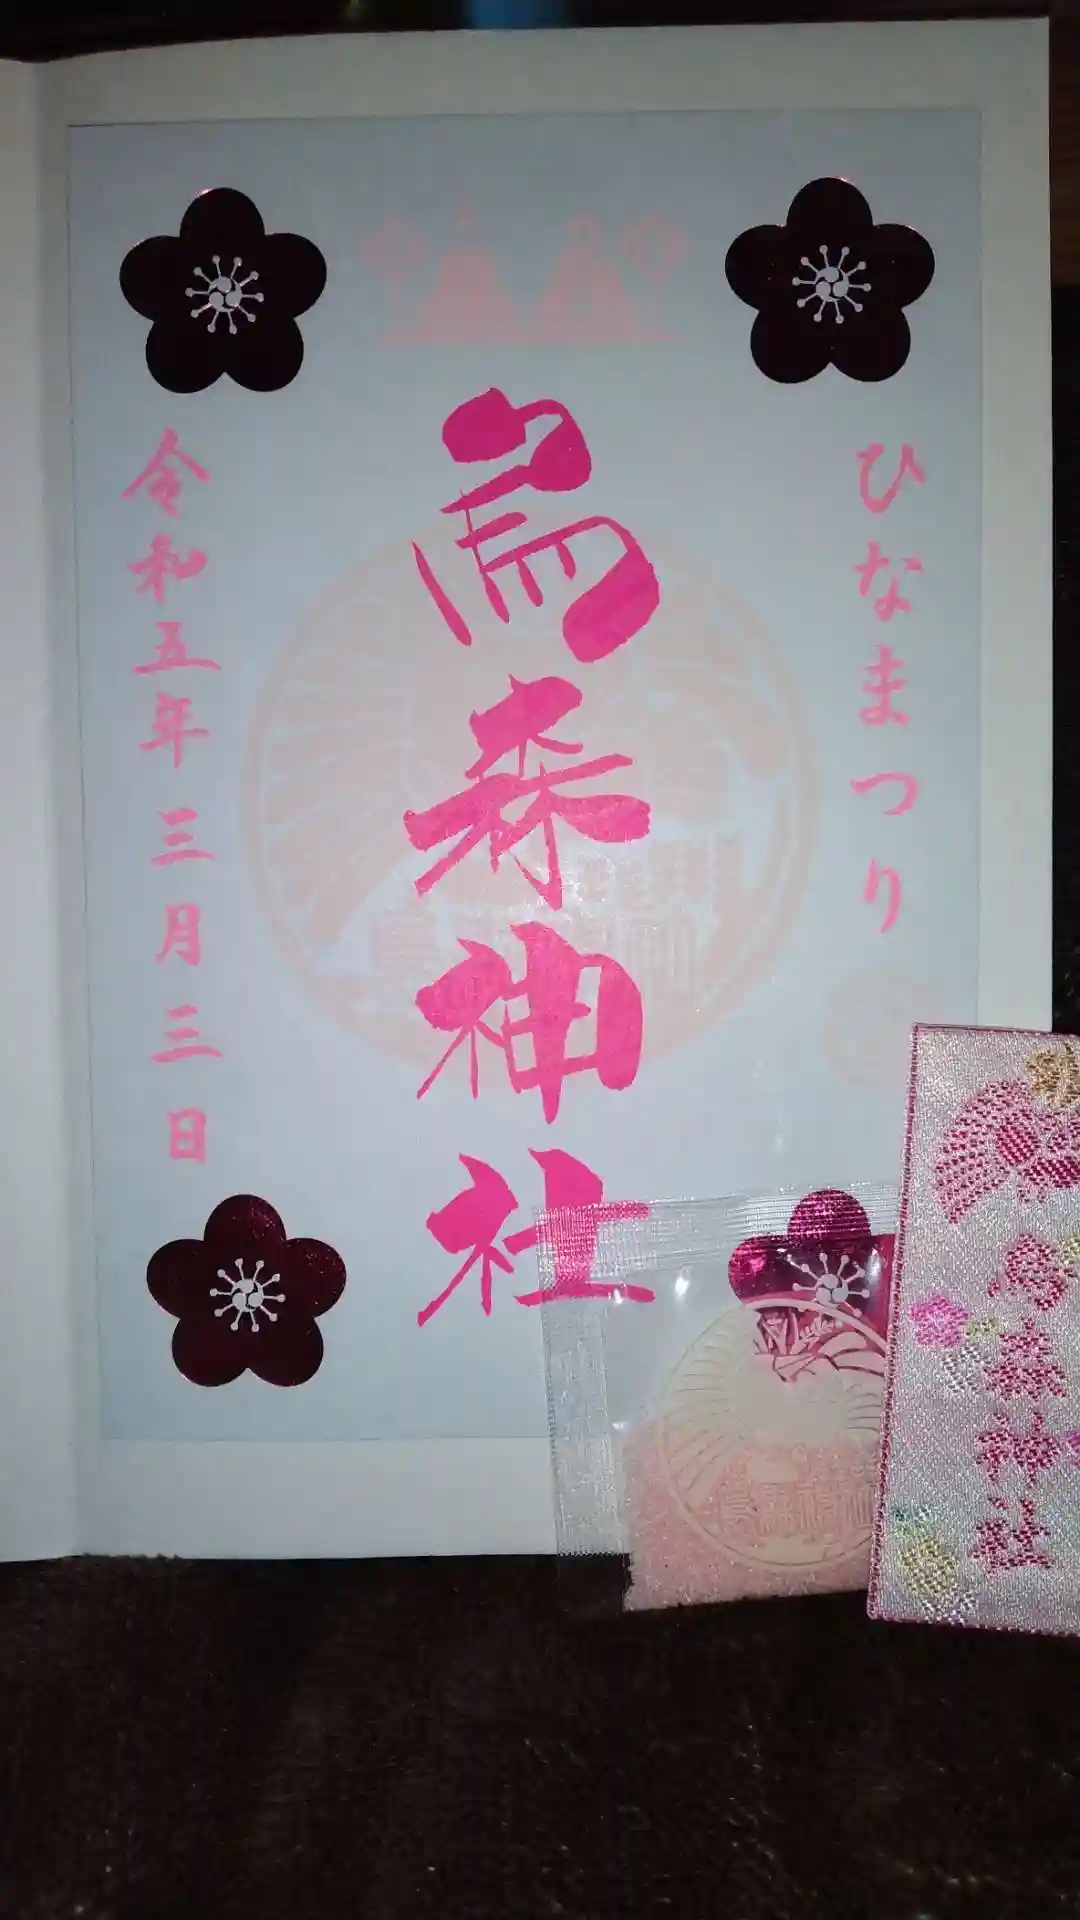 ひなまつり
烏森神社
令和五年三月三日
烏森神社